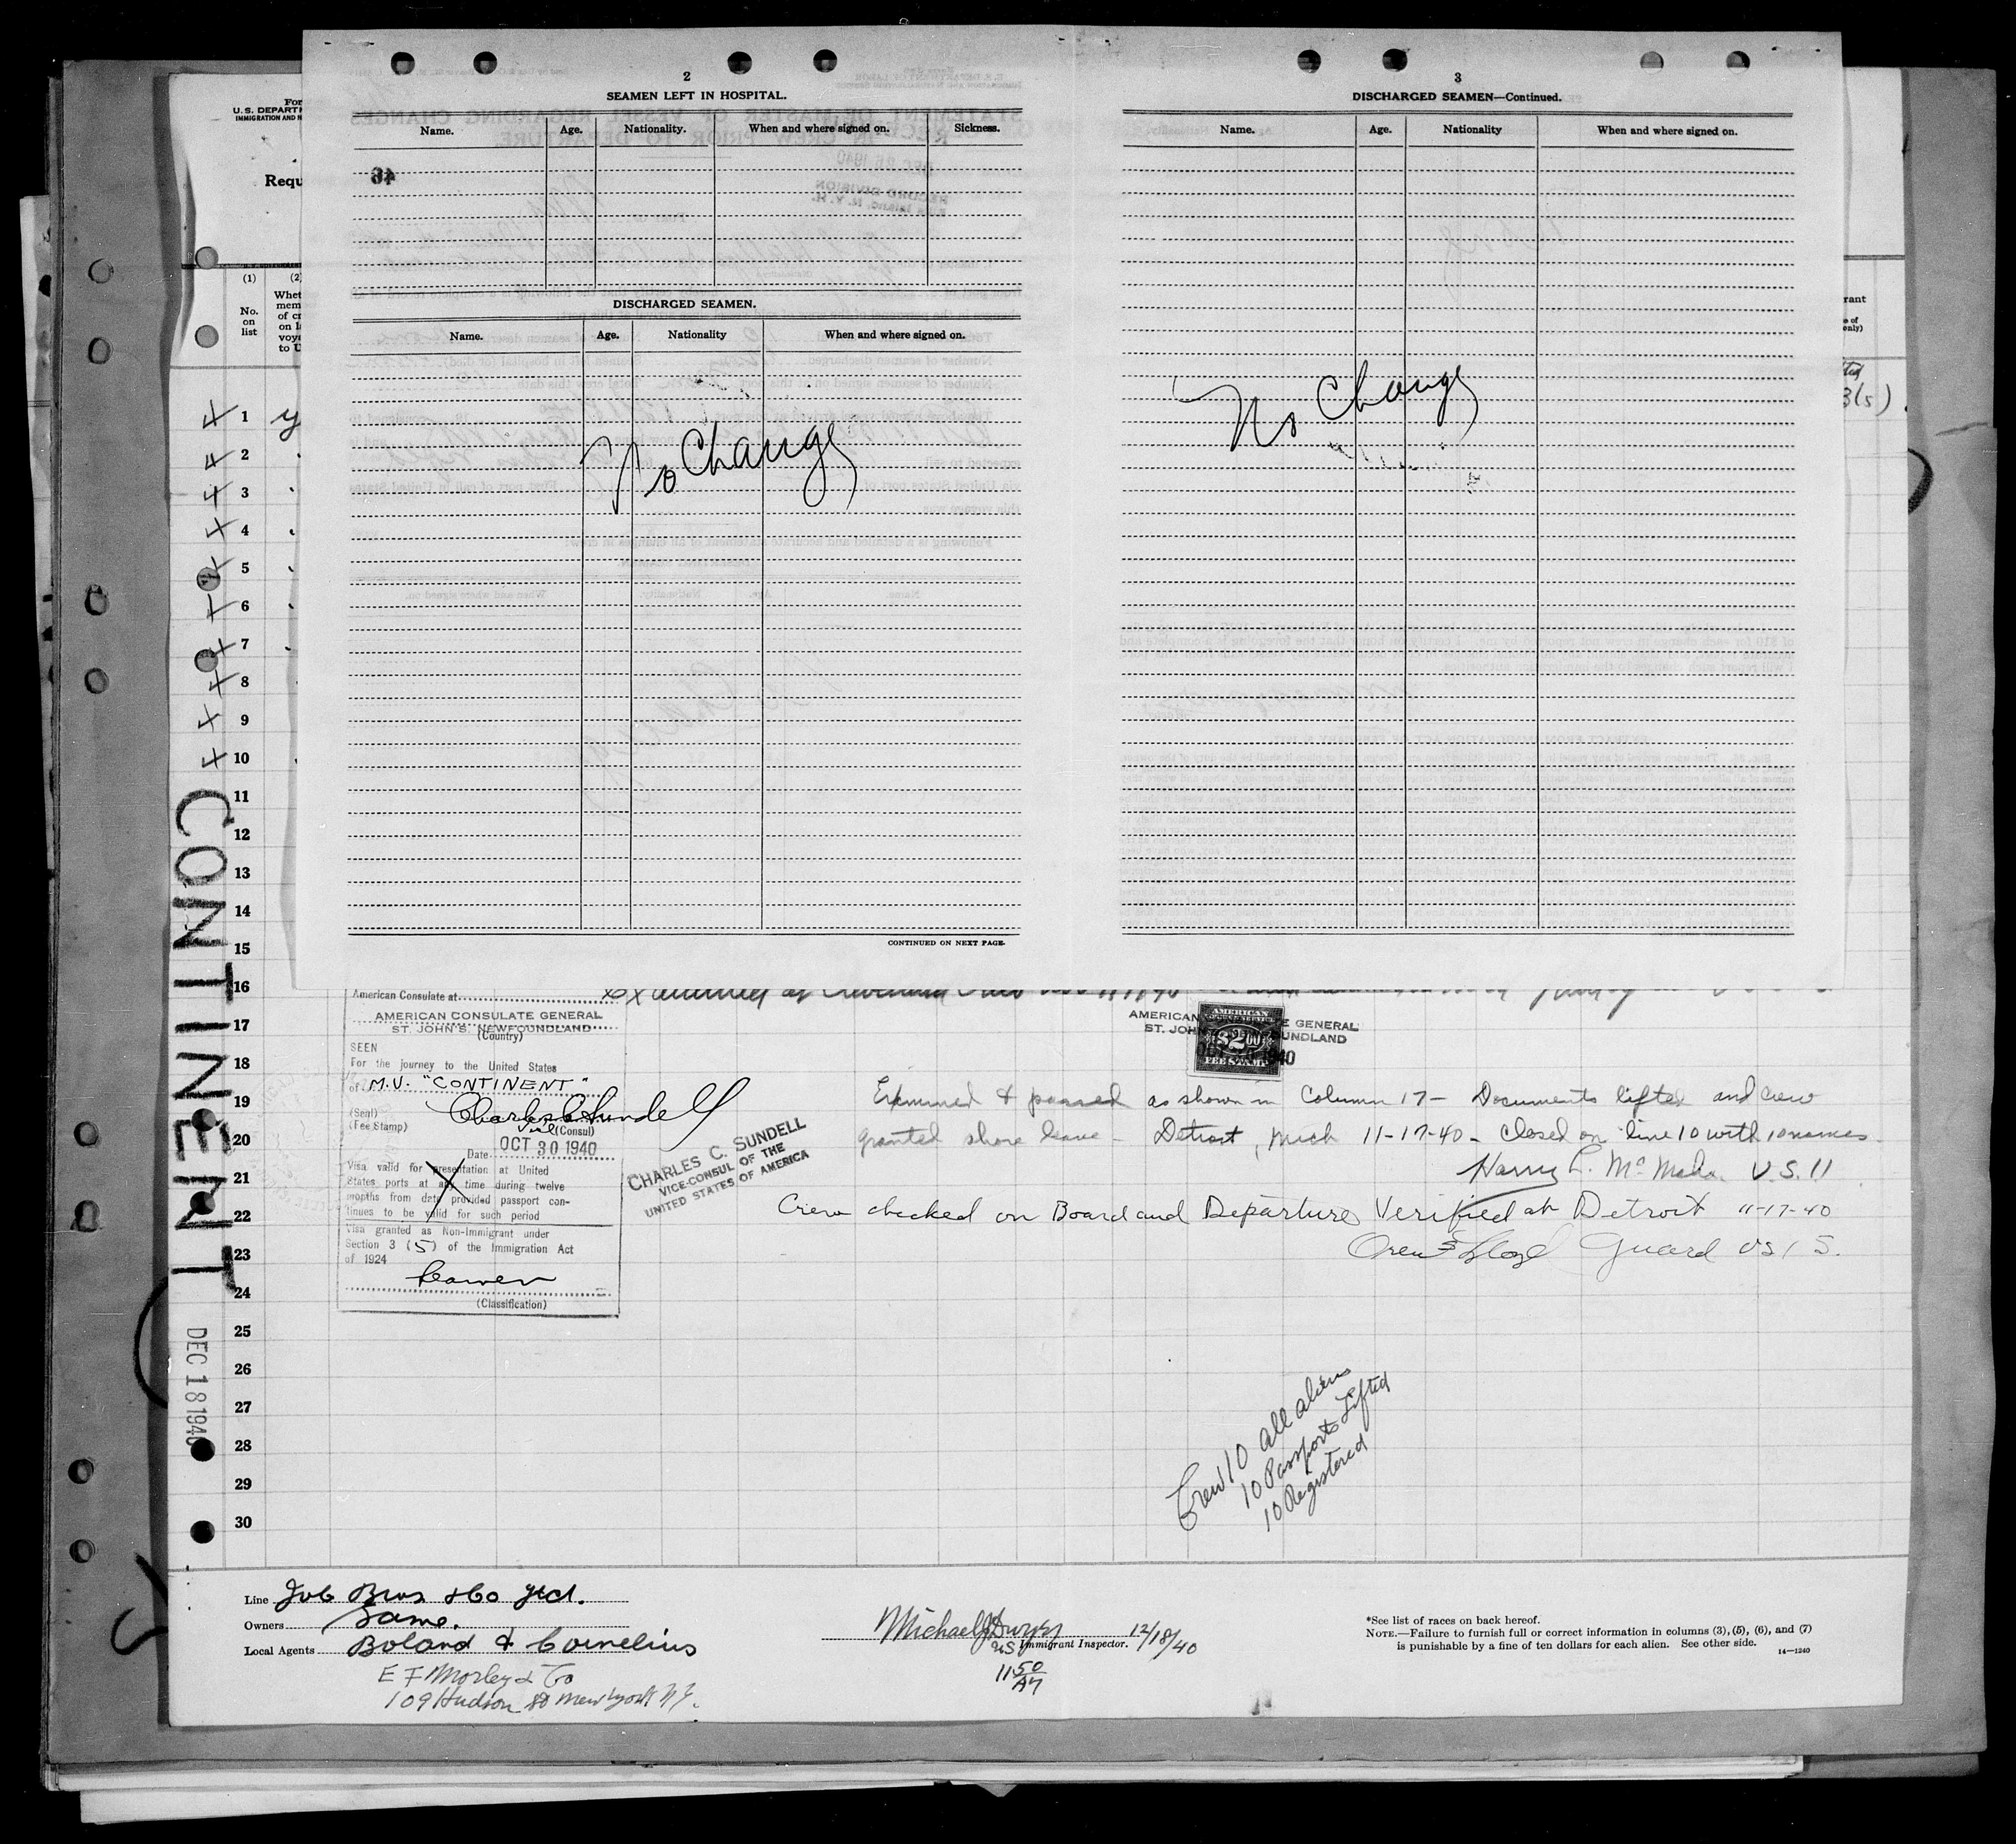 2
SEAMEN LEFT IN HOSPITAL.
Name. Age. Nationality. When and where signed on. Sickness.
46
DISCHARGED SEAMEN.
Name. Age. Nationality When and where signed on.
No Change
CONTINUED ON NEXT PAGE.
3
DISCHARGED SEAMEN—Continued.
Name. Age. Nationality When and where signed on.
No Change
For
U.S. DEPART
IMMIGRATION AND N
Requ
(1) (2)
No. on list
Whet
mem
of cr
on l
voya
to U
rant
e of
only)
3(5)
1 y
2
3
4
5
6
7
8
9
10
11
12
13
14
15
16
17
18
19
20
21
22
23
24
25
26
27
28
29
30
CONTINENT
DEC 18 1940
American Consulate at
AMERICAN CONSULATE GENERAL
ST. JOHN'S, NEWFOUNDLAND
(Country)
SEEN
For the journey to the United States
of M.V. "CONTINENT"
Charles C Sundell
(Seal)
(Fee Stamp)
Vice (Consul)
Date OCT 30 1940
Visa valid for presentation at United
States ports at any time during twelve
months from date provided passport con-
tinues to be valid for such period
Visa granted as Non-Immigrant under
Section 3 (5) of the Immigration Act
of 1924
Seamen
(Classification)
CHARLES C. SUNDELL
VICE-CONSUL OF THE
UNITED STATES OF AMERICA
AMERICAN CONSULATE GENERAL
ST. JOHN'S, NEWFOUNDLAND
AMERICAN
$2.00
FEE STAMP
Examined & passed as shown in Column 17 - Documents lifted and crew
granted shore leave - Detroit, Mich 11-17-40 - Closed on line 10 with 10 names
Harry L. McMaha. U.S.II
Crew checked on Board and Departure Verified at Detroit 11-17-40
Guard USIS.
Crew 10 all aliens
10 Passports Lifted
10 Registered
Line Job Bros & Co Ltd.
Owners Same.
Local Agents Boland & Cornelius
E F Morley & Co
109 Hudson St New York N Y.
Michael J Dwyer 12/18/40
US Immigrant Inspector.
11 50 AM
*See list of races on back hereof.
NOTE.—Failure to furnish full or correct information in columns (3), (5), (6), and (7)
is punishable by a fine of ten dollars for each alien. See other side.
14—1240